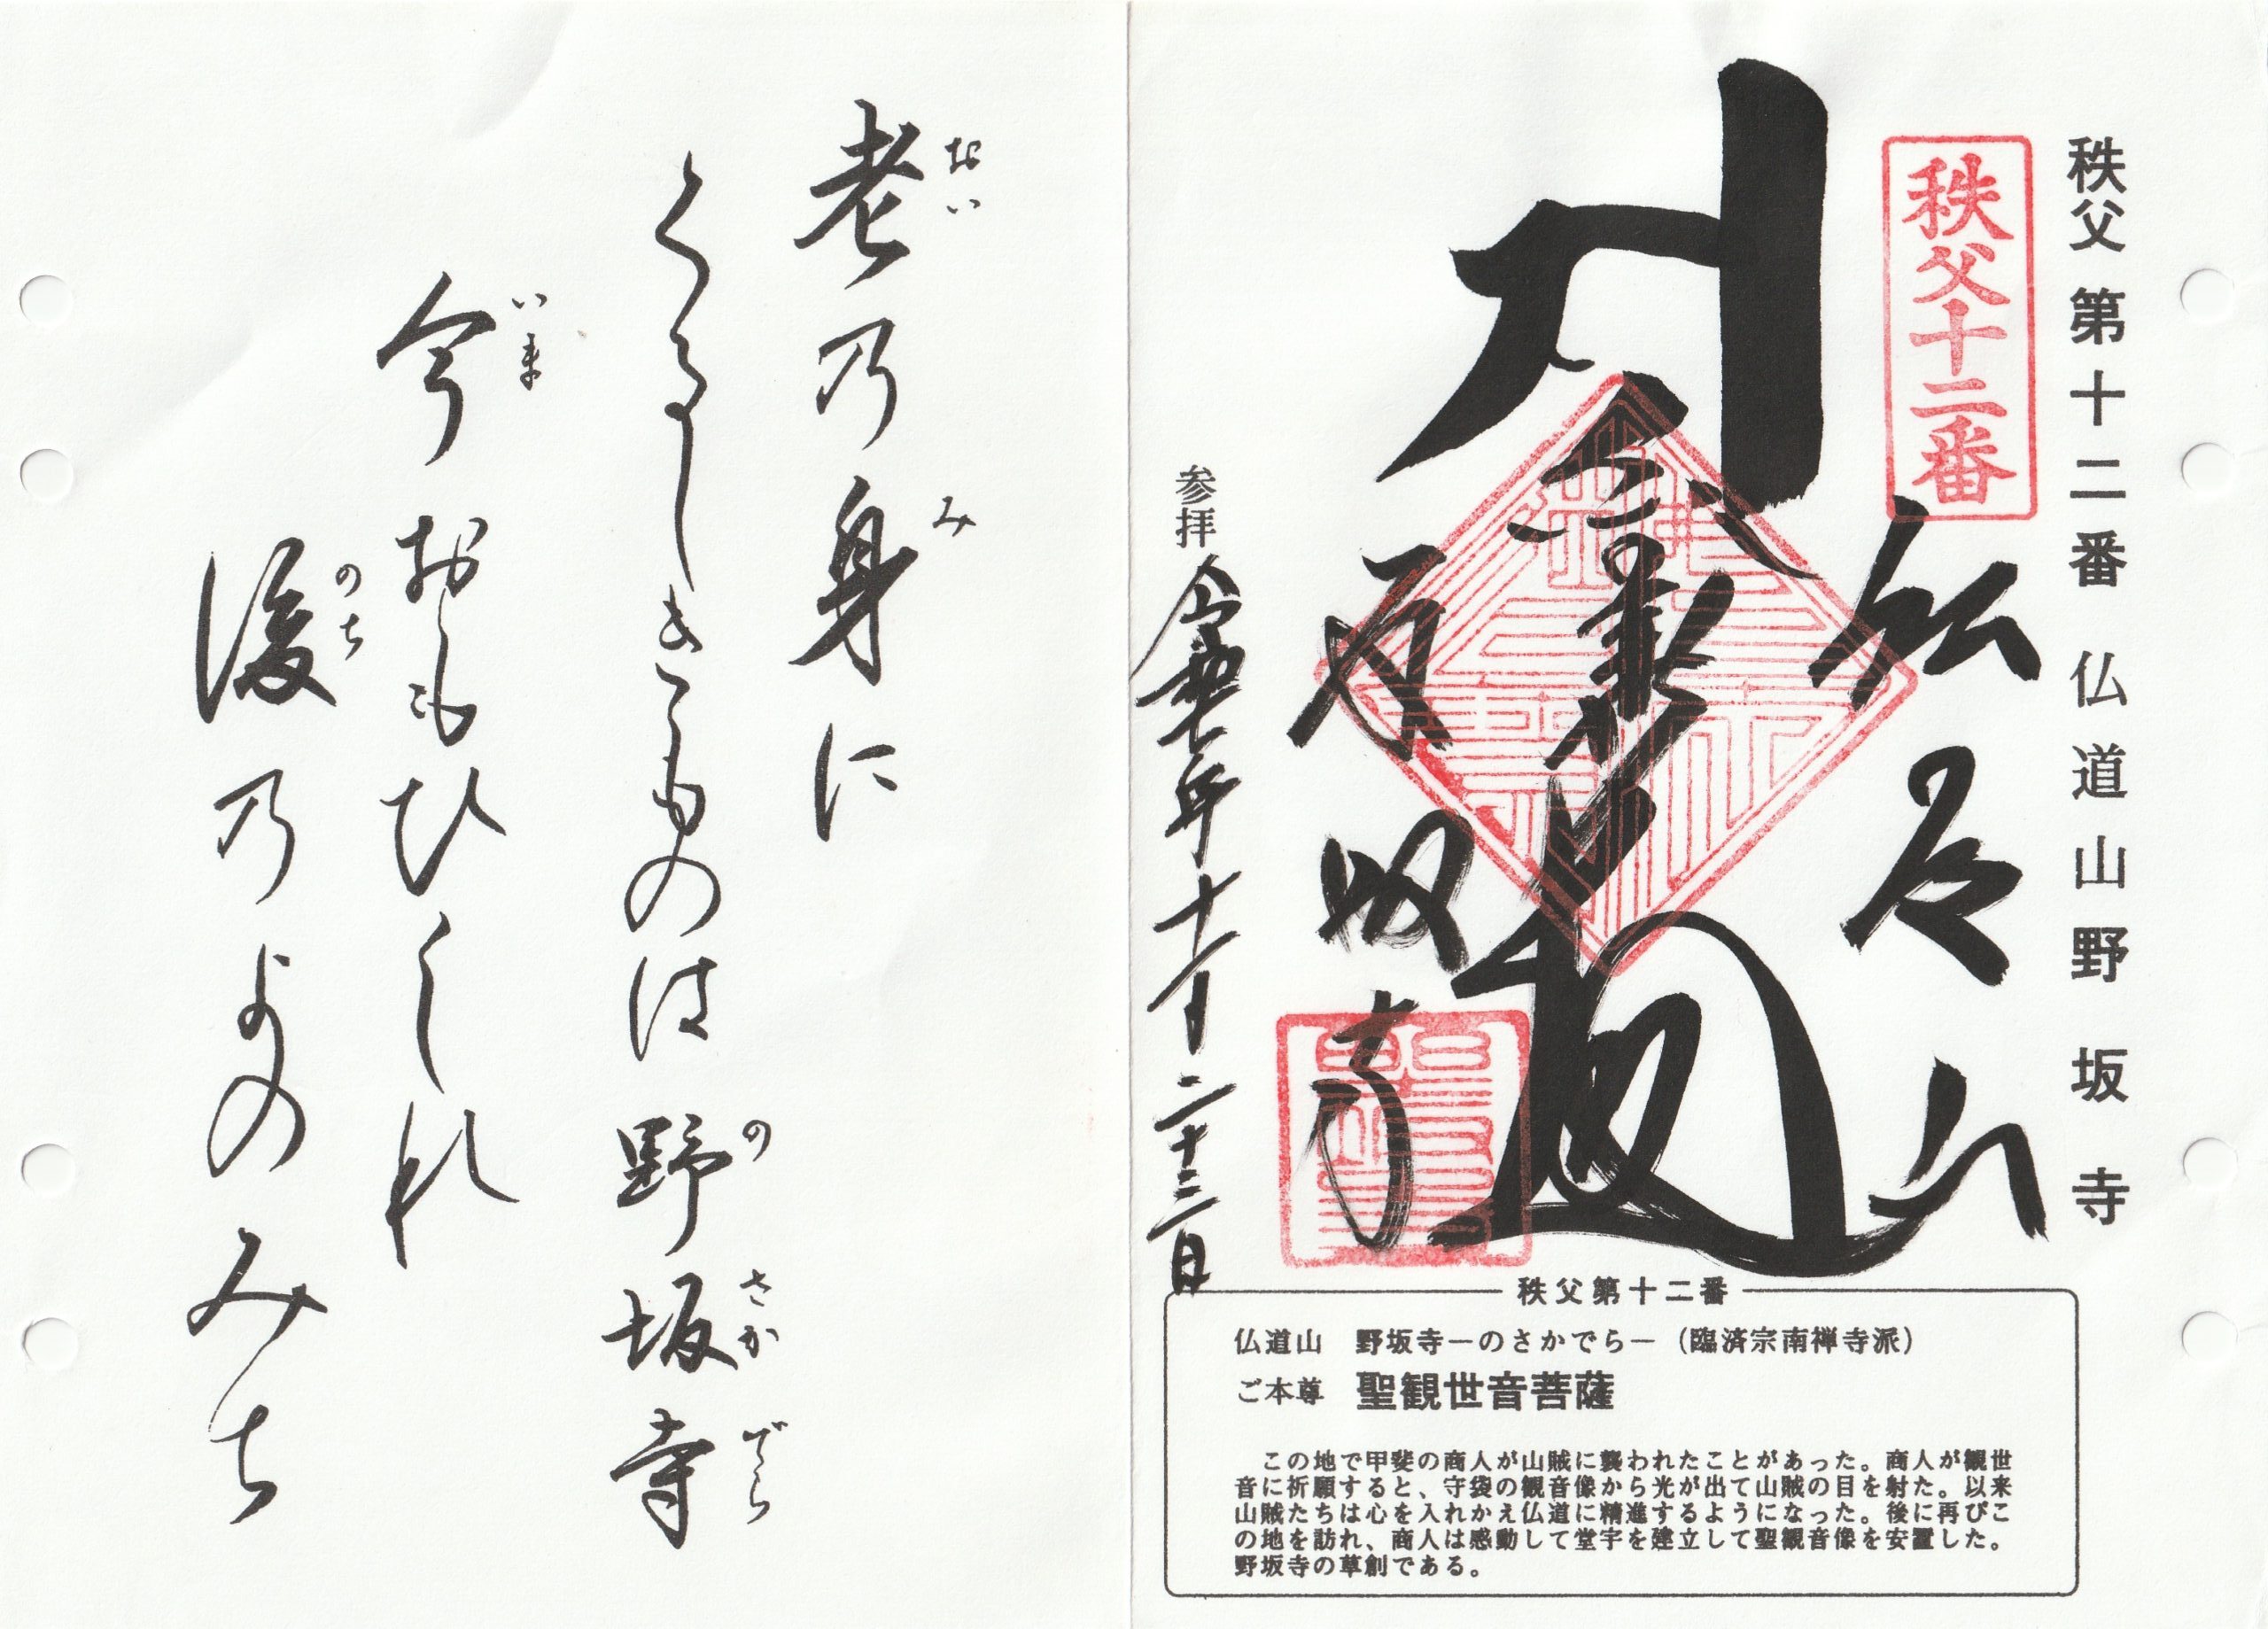 秩父第十二番 仏道山野坂寺
秩父十二番
仏道山
野坂寺
参拝 令和七年十一月二十三日
秩父第十二番
仏道山 野坂寺―のさかでら―(臨済宗南禅寺派)
ご本尊 聖観世音菩薩
この地で甲斐の商人が山賊に襲われたことがあった。商人が観世
音に祈願すると、守袋の観音像から光が出て山賊の目を射た。以来
山賊たちは心を入れかえ仏道に精進するようになった。後に再びこ
の地を訪れ、商人は感動して堂宇を建立して聖観音像を安置した。
野坂寺の草創である。
老乃身に
おい み
くるしきものは野坂寺
の さか でら
今おもひしれ
いま
後乃よのみち
のち